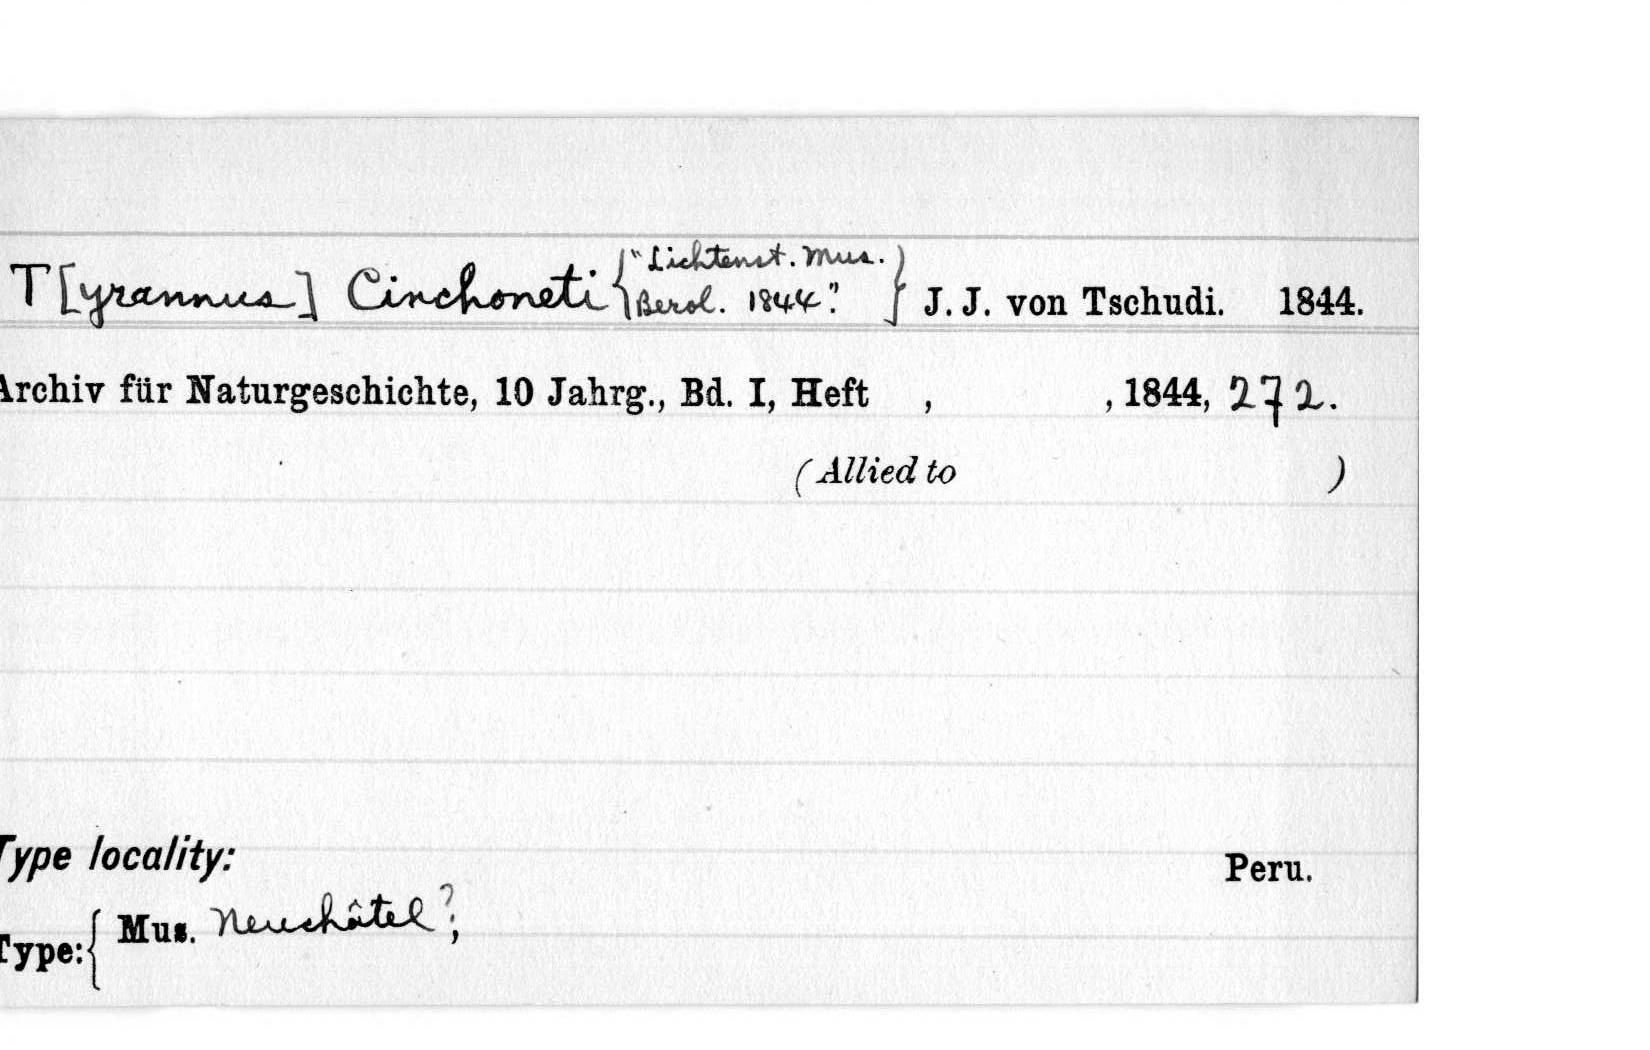 T[yrannus] Cinchoneti {"Lichtenst. Mus. Berol. 1844"?} J. J. von Tschudi. 1844.
Archiv für Naturgeschichte, 10 Jahrg., Bd. I, Heft , , 1844, 272.
(Allied to )
Type locality: Peru.
Type: { Mus. Neuchâtel?;